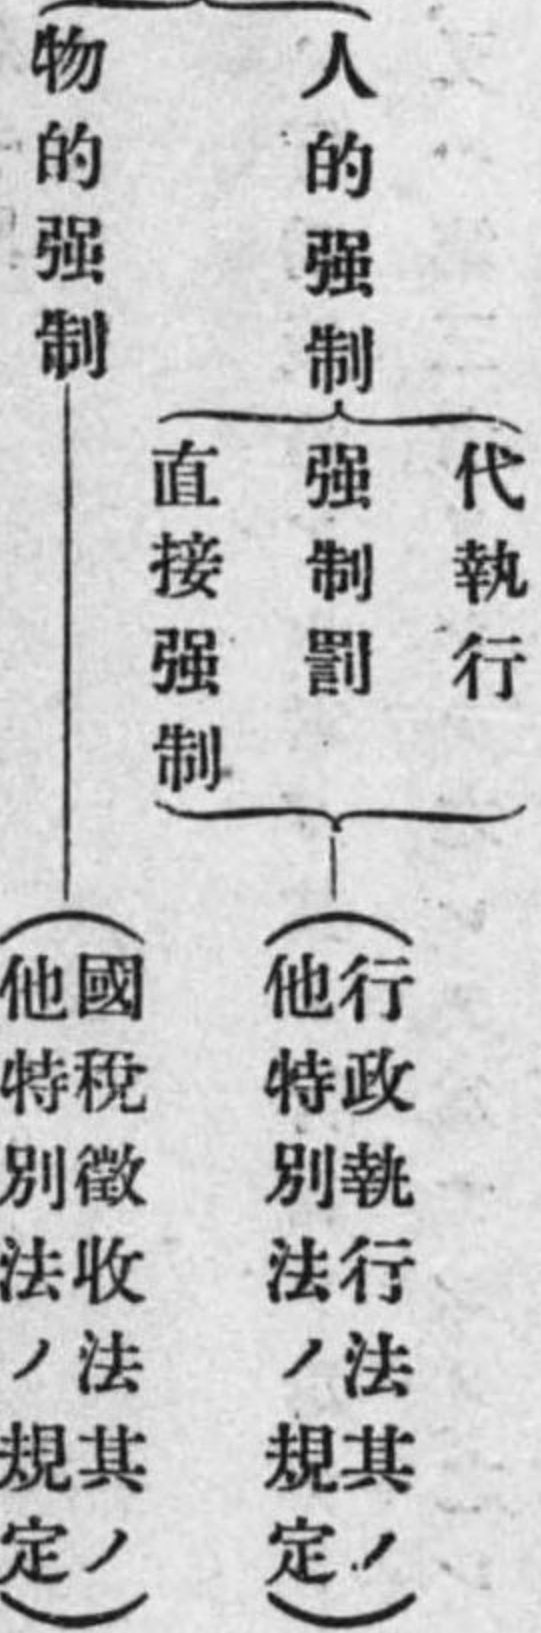 人的强制
代執行
强制罰
直接强制
行政執行法其ノ
他特別法ノ規定
物的强制
國稅徵收法其ノ
他特別法ノ規定